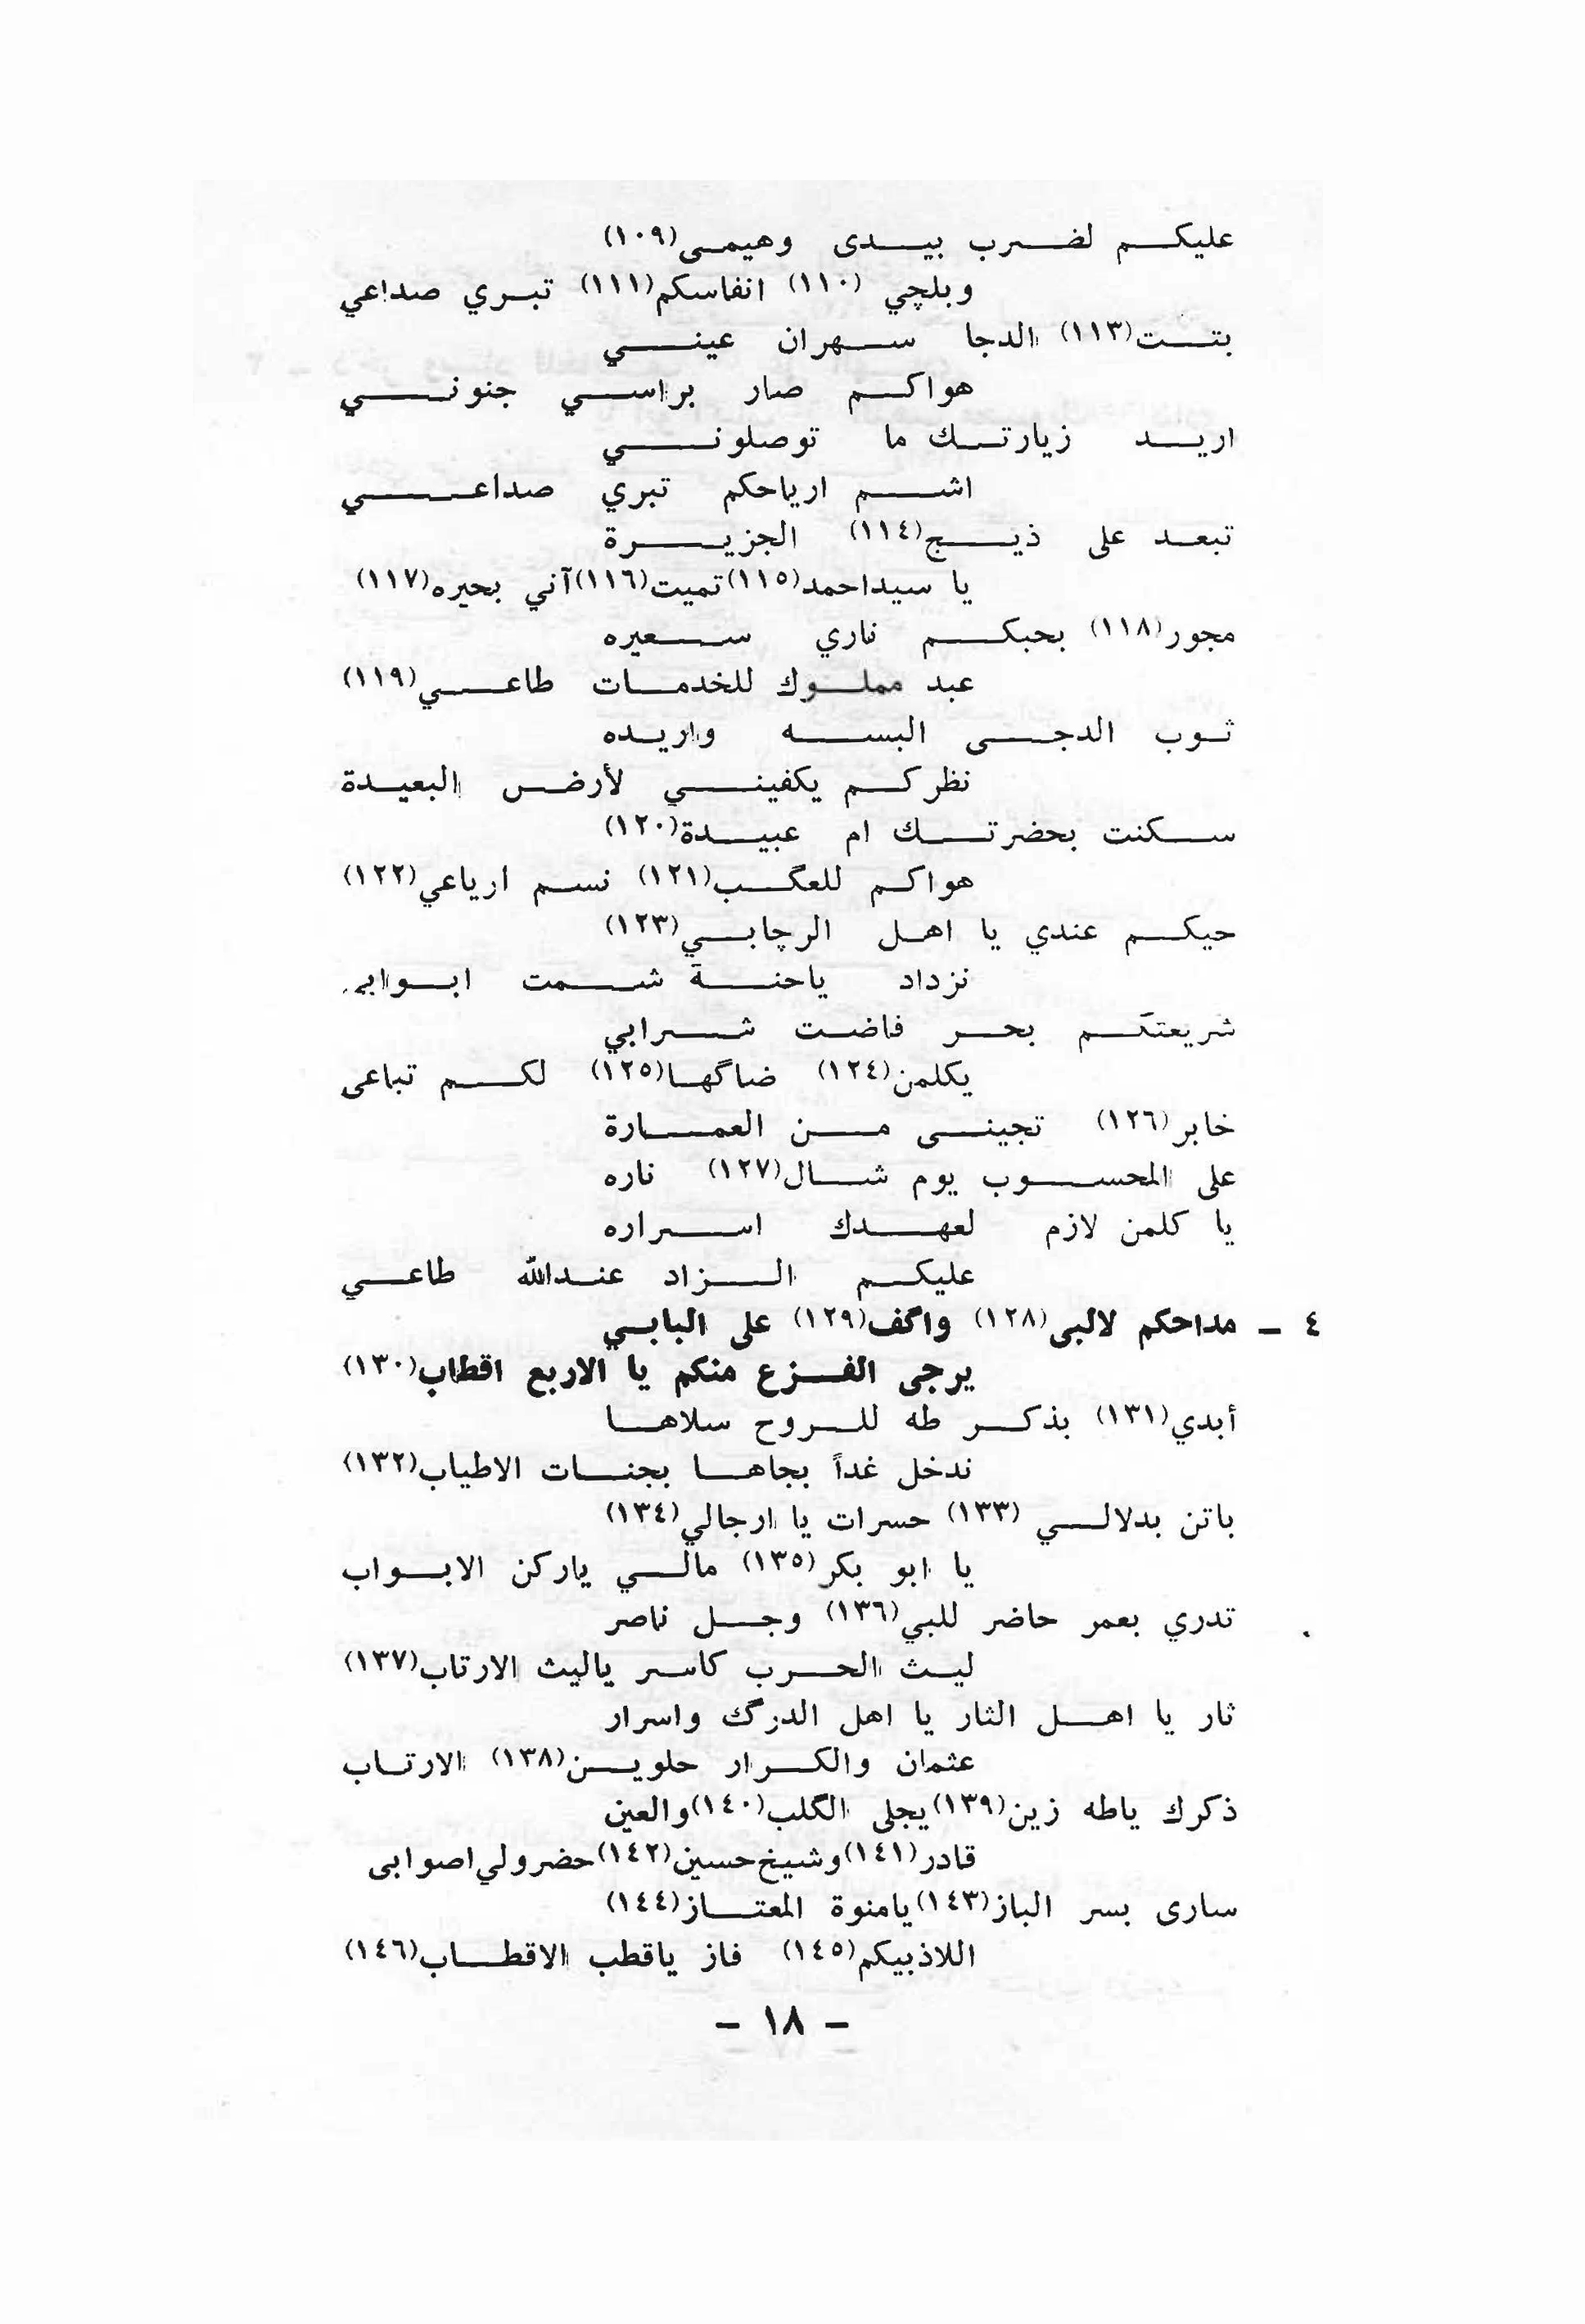 عليكم لضرب بيدى وهيمى(١٠٩)
وبلچي (١١٠) انفاسكم(١١١) تبري صداعي
بتت(١١٣) الدجا سهران عيني
هواكم صار براسي جنوني
اريد زيارتك ما توصلوني
اشم ارياحكم تبري صداعي
تبعد على ذيج(١١٤) الجزيرة
يا سيداحمد(١١٥)تميت(١١٦)آني بحيره(١١٧)
مجور(١١٨) بحبكم ناري سعيره
عبد مملوك للخدمات طاعي(١١٩)
ثوب الدجى البسه واريده
نظركم يكفيني لأرض البعيدة
سكنت بحضرتك ام عبيدة(١٢٠)
هواكم للعگب(١٢١) نسم ارياعي(١٢٢)
حيكم عندي يا اهل الرچابي(١٢٣)
نزداد ياحنة شمت ابوابي
شريعتكم بحر فاضت شرابي
يكلمن(١٢٤) ضاگها(١٢٥) لكم تباعى
خابر(١٢٦) تجينى من العمارة
على المحسوب يوم شال(١٢٧) ناره
يا كلمن لازم لعهدك اسراره
عليكم الزاد عندالله طاعي
٤ ــ مداحكم لالبى(١٢٨) واگف(١٢٩) على البابي
يرجى الفزع منكم يا الاربع اقطاب(١٣٠)
أبدي(١٣١) بذكر طه للروح سلاها
ندخل غداً بجاها بجنات الاطياب(١٣٢)
باتن بدلالي (١٣٣) حسرات يا ارجالي(١٣٤)
يا ابو بكر(١٣٥) مالي ياركن الابواب
تدري بعمر حاضر للبي(١٣٦) وجل ناصر
ليث الحرب كاسر ياليث الارتاب(١٣٧)
ثار يا اهل الثار يا اهل الدرگ واسرار
عثمان والكرار حلوين(١٣٨) الارتاب
ذكرك ياطه زين(١٣٩)يجلى الگلب(١٤٠)والعين
قادر(١٤١)وشيخ حسين(١٤٢)حضرولي اصوابى
سارى بسر الباز(١٤٣)يامنوة المعتاز(١٤٤)
اللاذبيكم(١٤٥) فاز ياقطب الاقطاب(١٤٦)
– ١٨ –